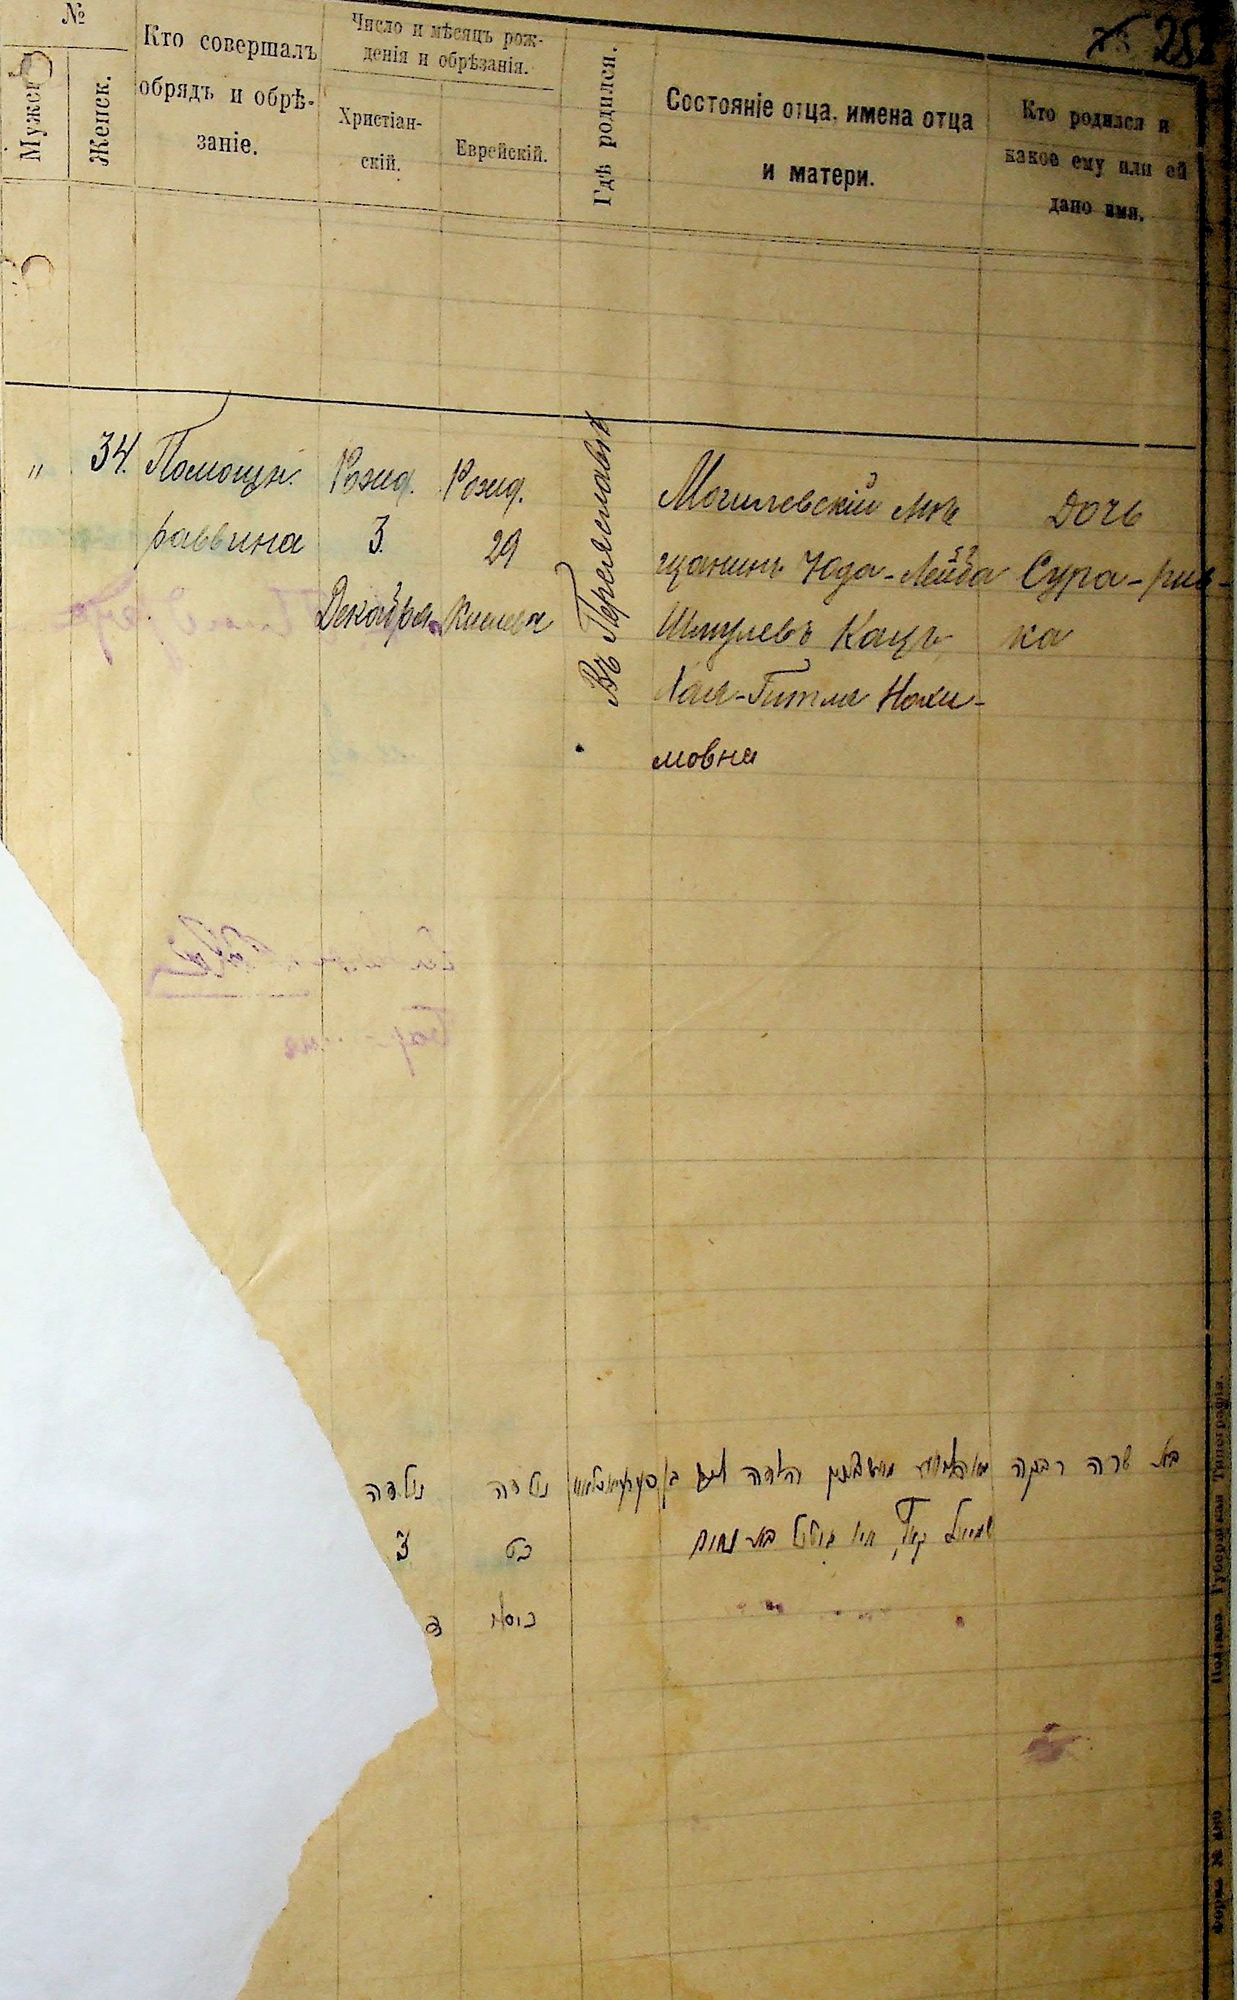 №
Мужск
Женск.
Кто совершалъ
обрядъ и обрѣ-
заніе.
Число и мѣсяцъ рож-
денія и обрѣзанія.
Христіан-
скій.
Еврейскій.
Гдѣ родился.
Состояніе отца, имена отца
и матери.
Кто родился и
какое ему или ей
дано имя.
„
34.
Помощн.
раввина
Рожд.
3
Декабря
Рожд.
29
Кислева
Въ Переяславѣ
Могилевскій мѣ
щанинъ Юда-Лейба
Шмулевъ Кацъ
Хая-Гитля Нохи-
мовна
Дочь
Сура-рив-
ка
בת שרה רבקה
נולדה
נולדה
שמואל קאץ חיה גיטל בת נחום
כט
3
כסלו
ד
Полтава Губернская Типографія.